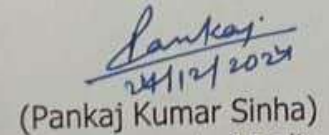 Pankaj.
24/12/2024
(Pankaj Kumar Sinha)